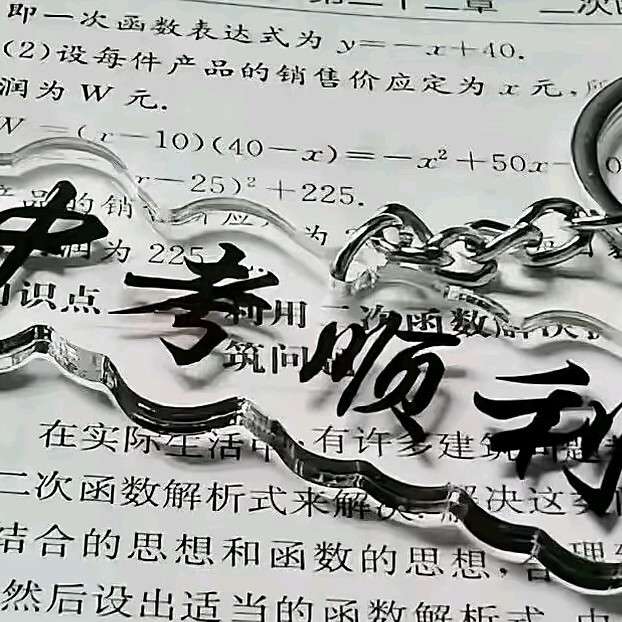 第二十二章 二次函
即一次函数表达式为 y=-x+40.
(2)设每件产品的销售价应定为 x 元,所
润为 W 元.
W=(x-10)(40-x)=-x²+50x-
x-25)²+225.
产品的销 价应 为
润为 225
中考顺利
知识点 利用二次函数解决
筑问
在实际生活中,有许多建筑问题
二次函数解析式来解决.解决这类
结合的思想和函数的思想,合理
然后设出适当的函数解析式,由